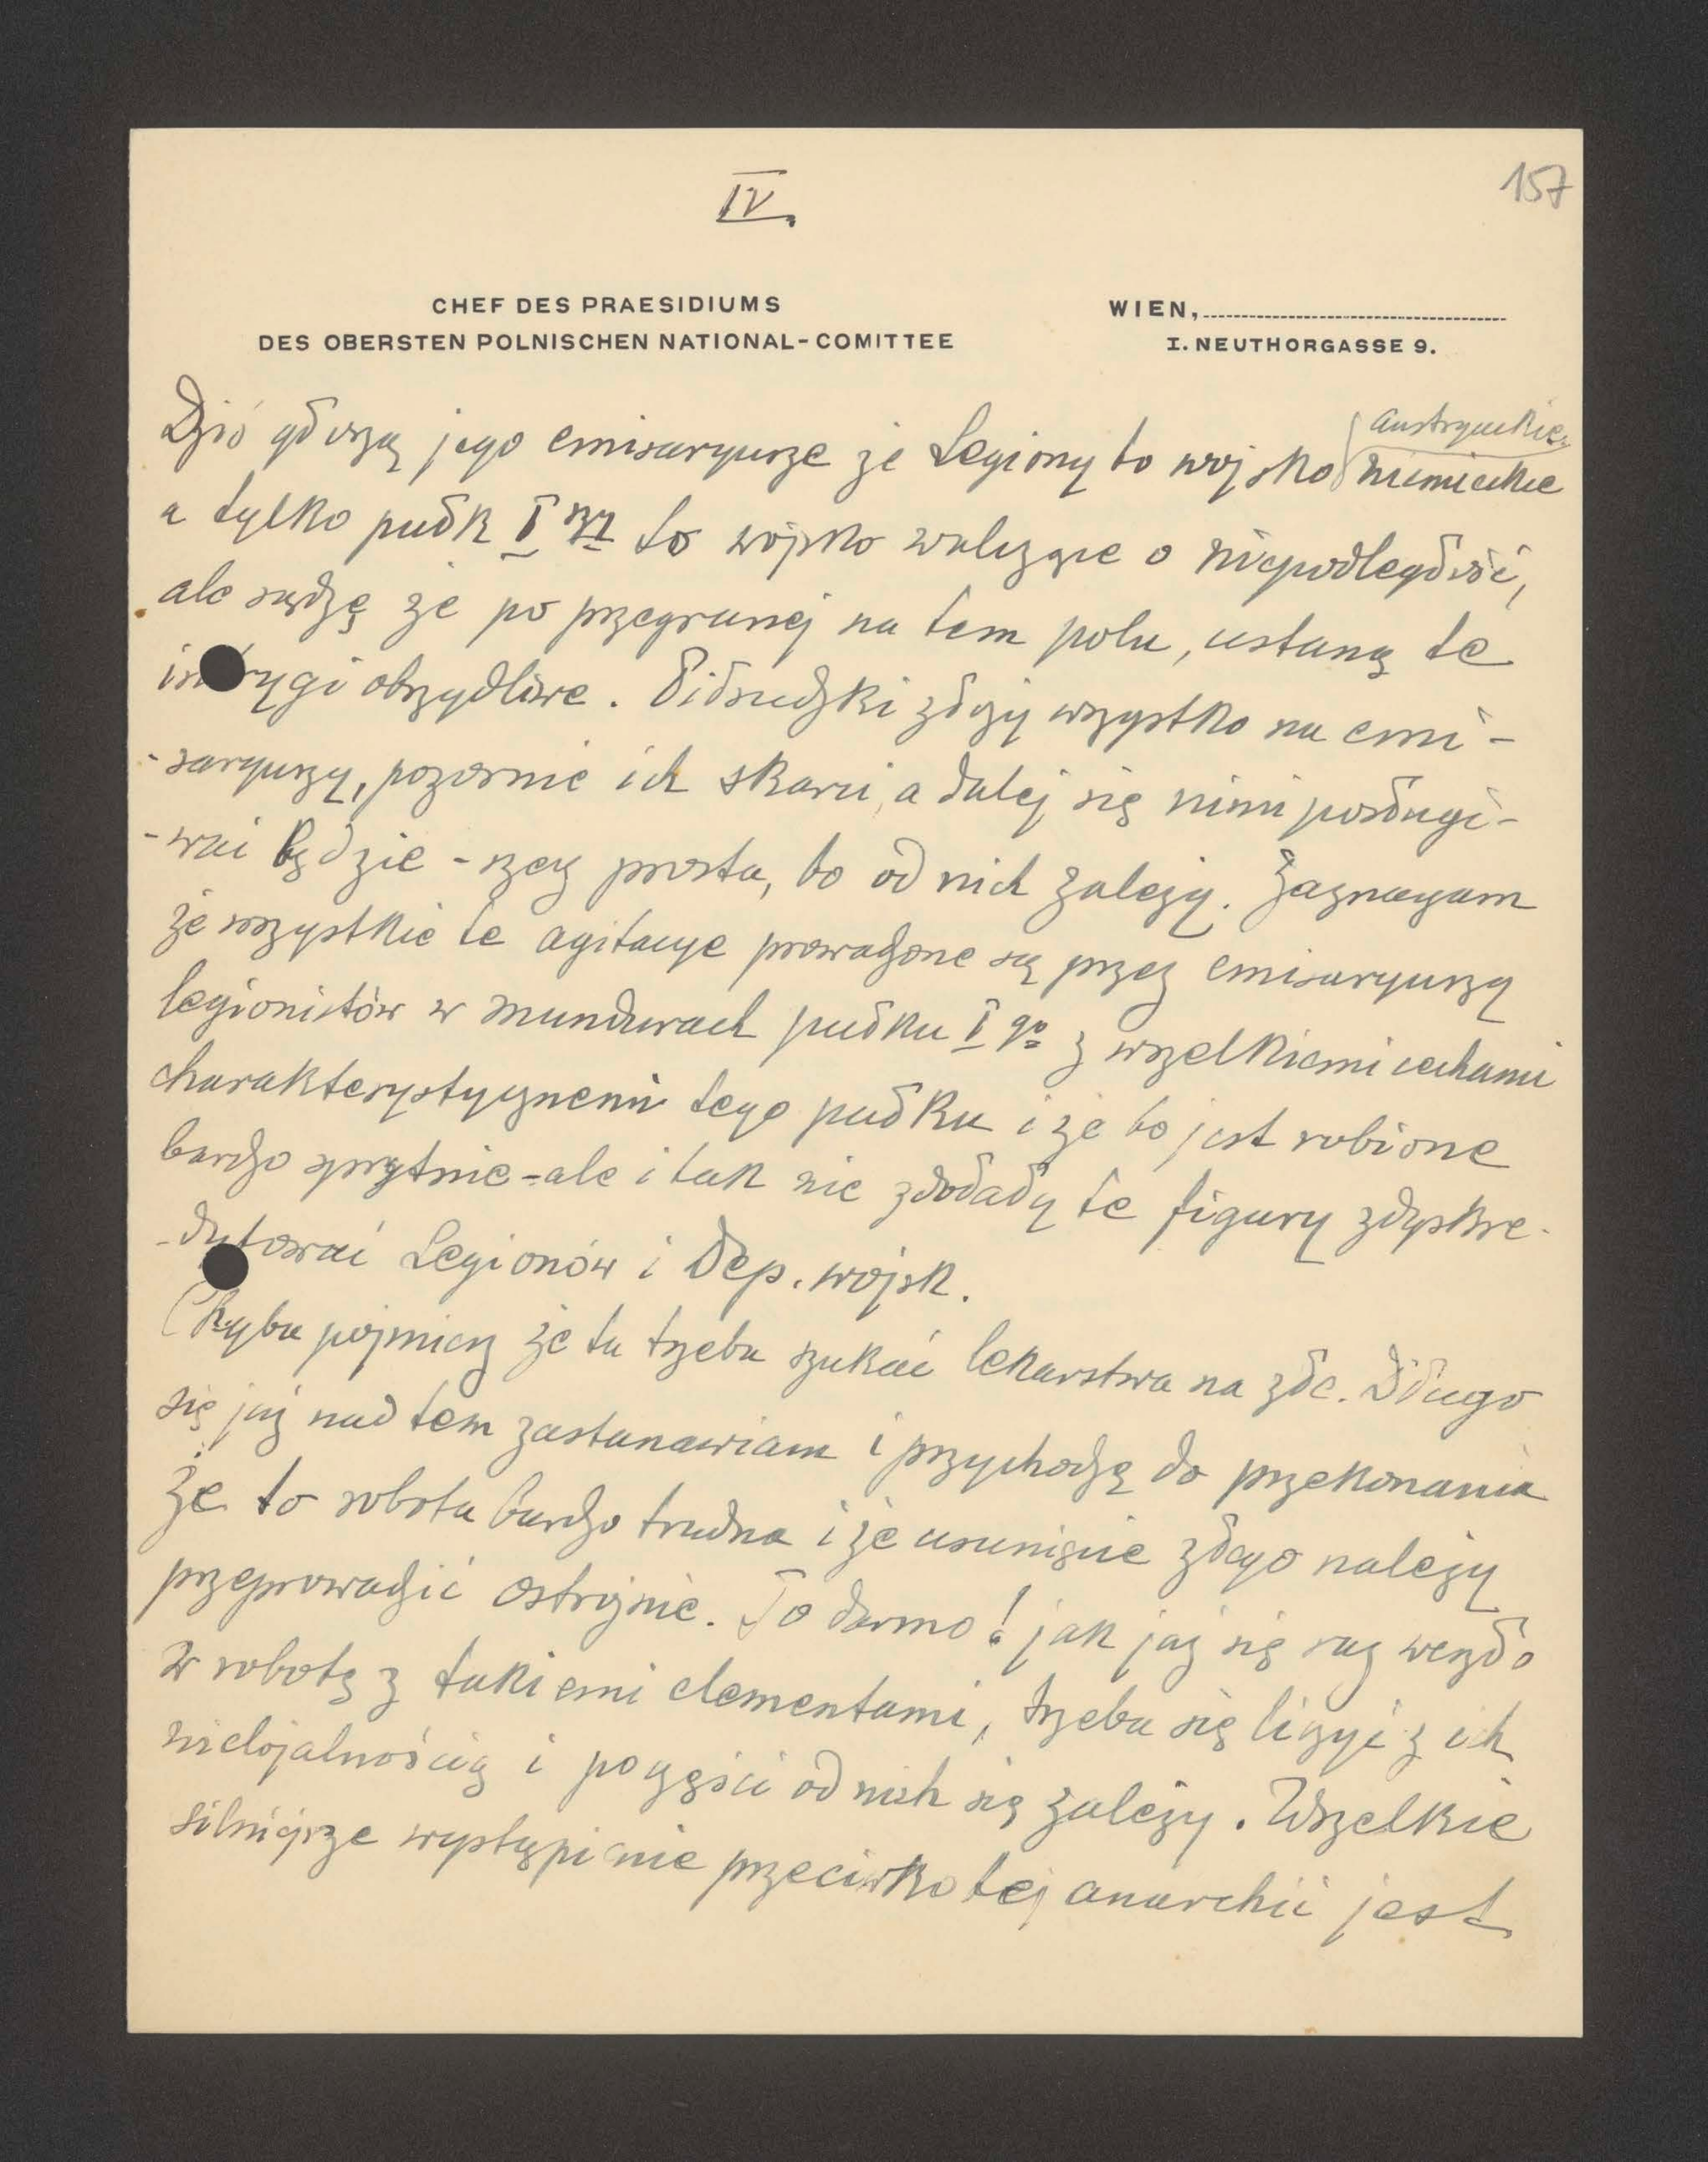 157
IV.
CHEF DES PRAESIDIUMS
DES OBERSTEN POLNISCHEN NATIONAL-COMITTEE
WIEN,
I. NEUTHORGASSE 9.
austryackie
Dziś głoszą jego emisaryusze że Legiony to wojsko niemieckie
a tylko pułk I szy to wojsko walczące o niepodległość,
ale sądzę że po przegranej na tem polu, ustaną te
intrygi obrzydliwe. Piłsudzki złoży wszystko na emi-
-saryuszy, pozornie ich skarci, a dalej się nimi posługi-
-wać będzie - rzecz prosta, bo od nich zależy. Zaznaczam
że wszystkie te agitacye prowadzone są przez emisaryuszy
legionistów w mundurach pułku I go z wszelkiemi cechami
charakterystycznemi tego pułku i że to jest robione
bardzo sprytnie - ale i tak nie zdołały te figury zdyskre-
-dytować Legionów i Dep. wojsk.
Chyba pojmiesz że tu trzeba szukać lekarstwa na złe. Długo
się już nad tem zastanawiam i przychodzę do przekonania
że to robota bardzo trudna i że usunięcie złego należy
przeprowadzić ostrożnie. To darmo! jak już się raz weszło
w robotę z takiemi elementami, trzeba się liczyć z ich
nielojalnością i po części od nich się zależy. Wszelkie
silniejsze wystąpienie przeciwko tej anarchii jest